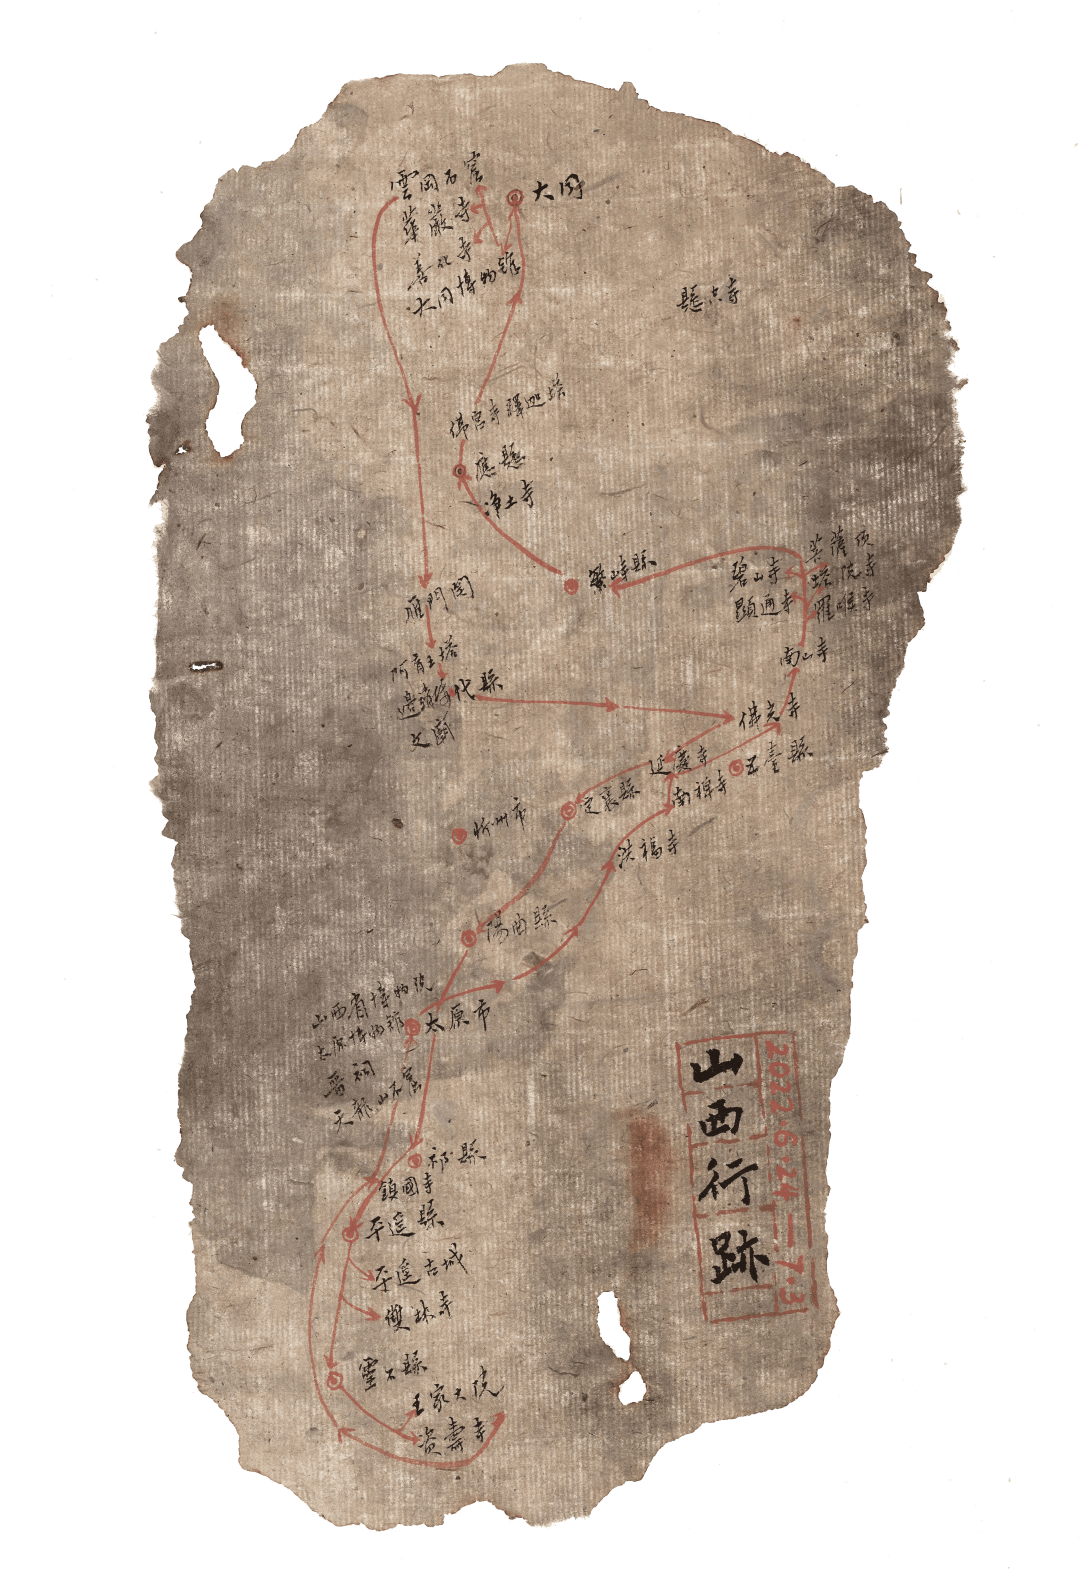 雲岡石窟
大同
華嚴寺
善化寺
大同博物館
懸空寺
佛宮寺釋迦塔
應縣
净土寺
繁峙縣
菩薩頂
碧山寺
塔院寺
顯通寺
羅睺寺
雁門関
南山寺
阿育王塔
邊靖楼
代縣
文廟
佛光寺
延慶寺
五臺縣
定襄縣
南禪寺
忻州市
洪福寺
陽曲縣
山西省博物院
太原博物館
太原市
晋祠
天龍山石窟
祁縣
鎮國寺
平遥縣
平遥古城
雙林寺
靈石縣
王家大院
资壽寺
山西行跡
2022·6·24—7·3